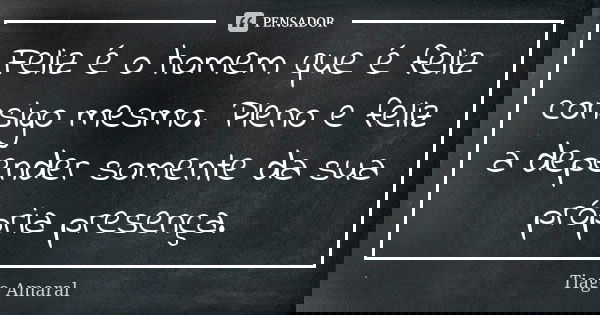 PENSADOR
Feliz é o homem que é feliz
consigo mesmo. Pleno e feliz
a depender somente da sua
própria presença.
Tiago Amaral